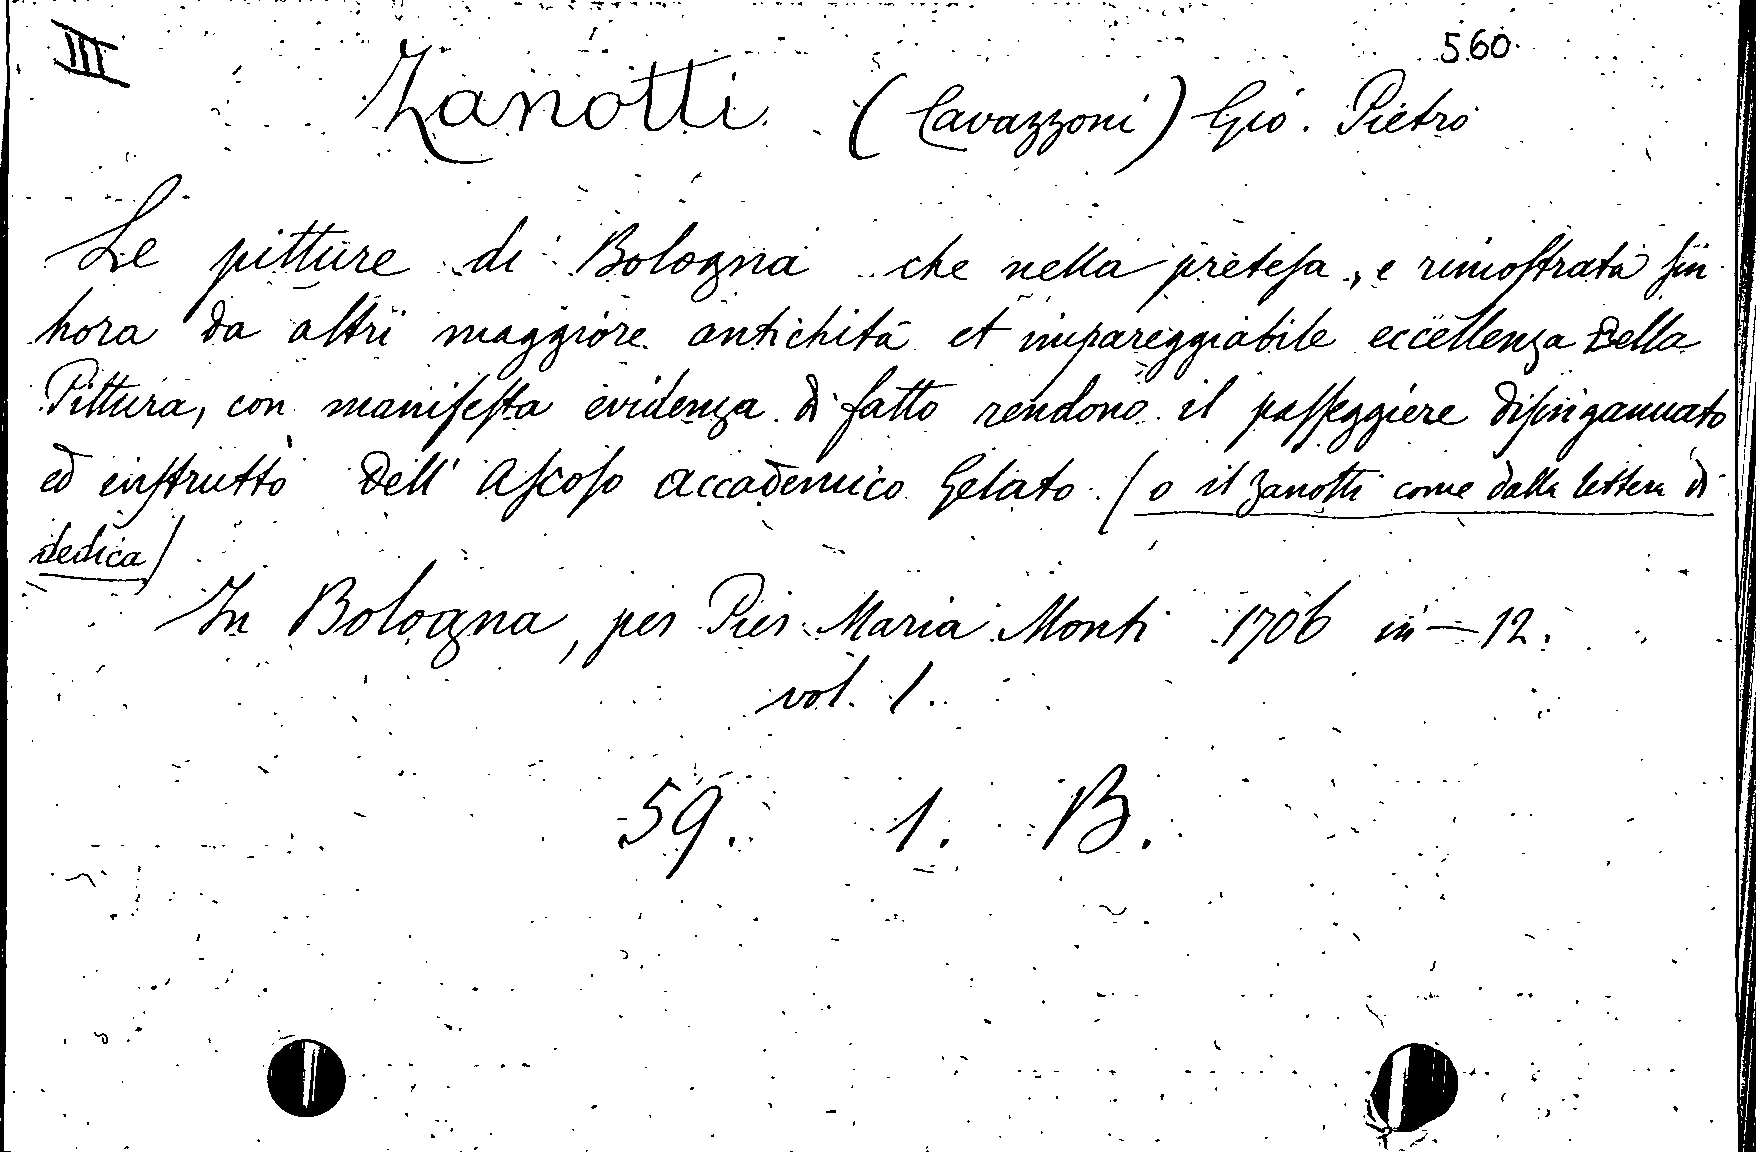 III
560
Zanotti (Cavazzoni) Gio. Pietro
Le pitture di Bologna che nella pretesa, e rimostrata sin
hora da altri maggiore antichità et impareggiabile eccellenza della
Pittura, con manifesta evidenza di fatto rendono il passeggiere disingannato
ed instrutto dell' Ascoso accademico Gelato. (o il Zanotti come dalla lettera di
dedica)
In Bologna, per Pier Maria Monti 1706 in-12.
vol. 1.
59. 1. B.